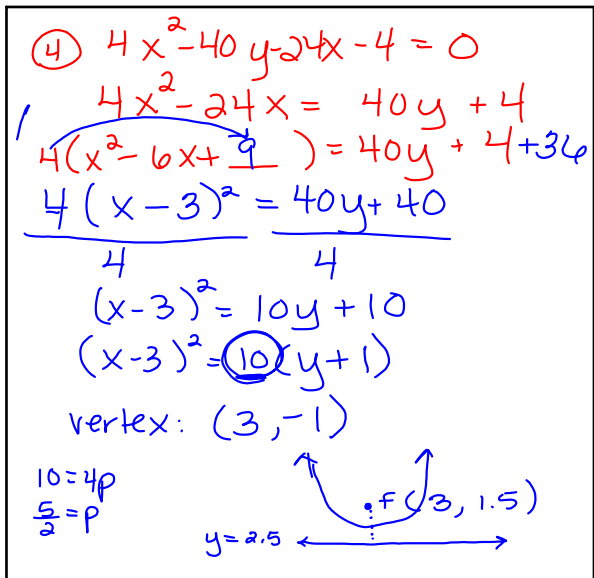 ④ 4x²-40y-24x-4 = 0
4x²-24x = 40y+4
4(x²-6x+9) = 40y+4+36
4(x-3)² = 40y+40
4 4
(x-3)² = 10y+10
(x-3)² = 10(y+1)
vertex: (3,-1)
10=4p
5/2=p
f(3, 1.5)
y=2.5